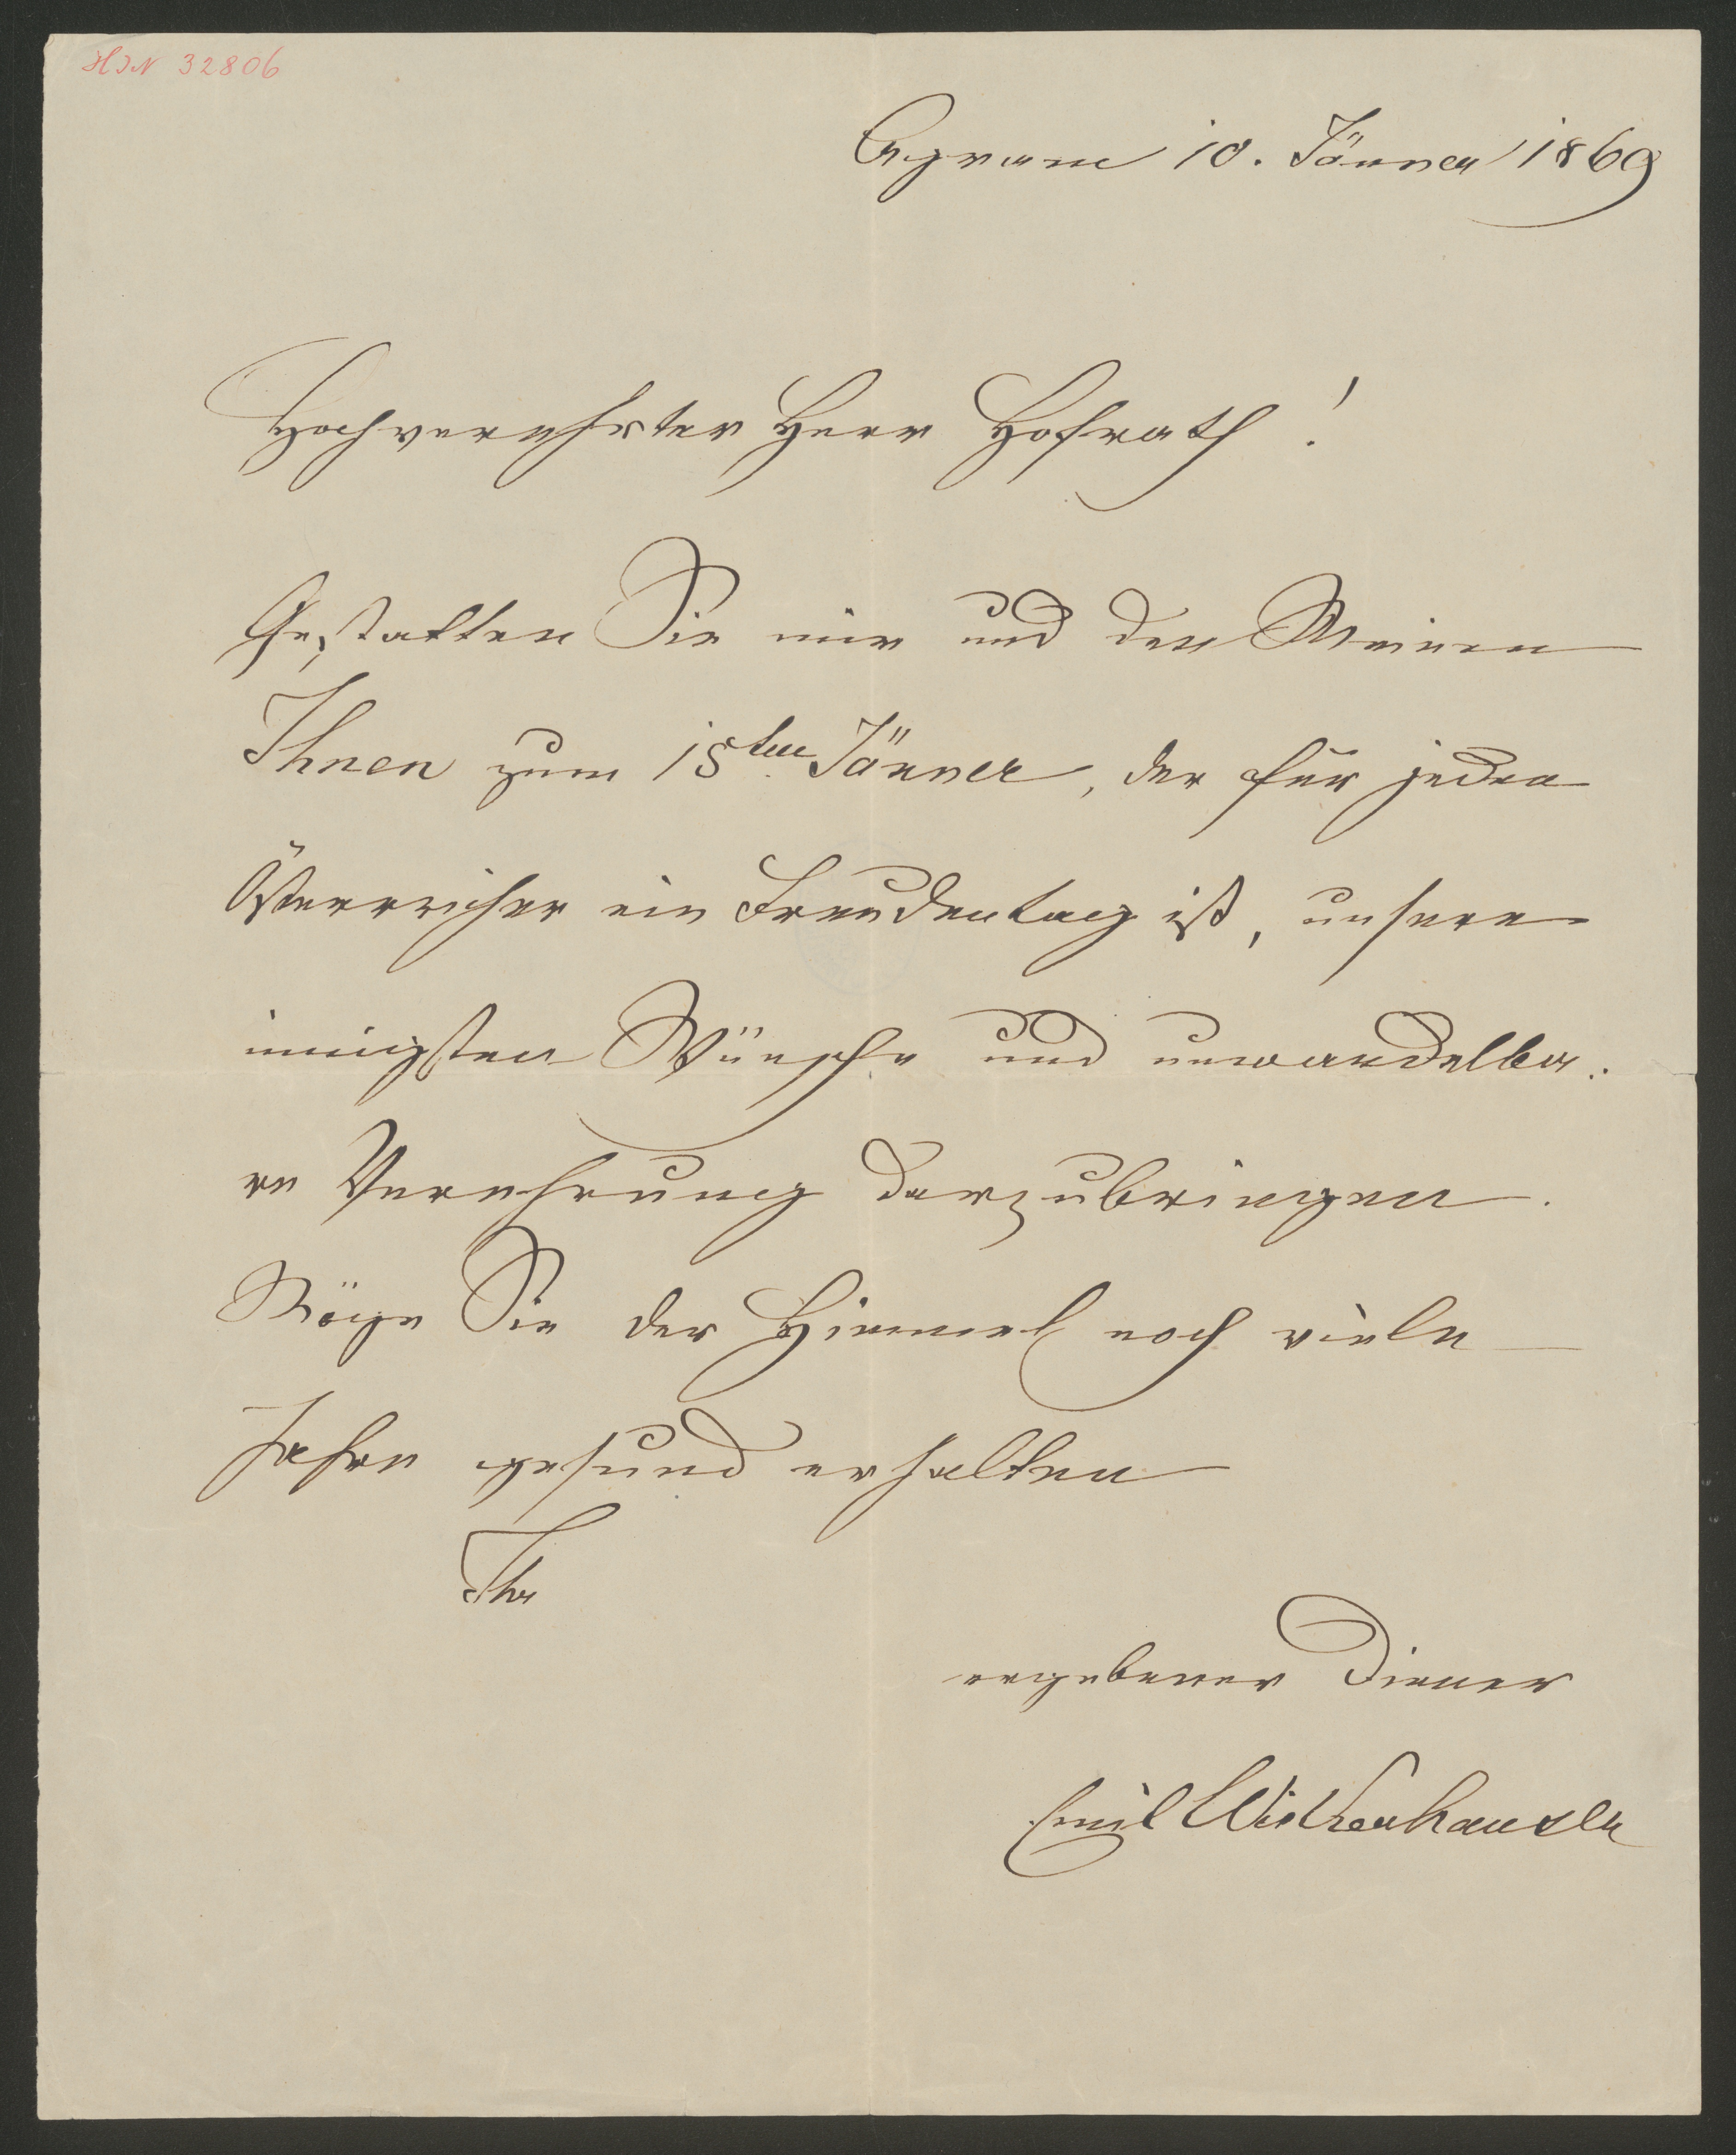 HIN 32806
Agram 10. Jänner 1869
Hochverehrter Herr Hofrath!
Gestatten Sie mir und den Meinen
Ihnen zum 15ten Jänner, der für jeden
Österreicher ein Freudentag ist, unsere
innigsten Wünsche und unwandelba-
re Verehrung darzubringen.
Möge Sie der Himmel noch viele
Jahre gesund erhalten
Ihr
ergebener Diener
Emil